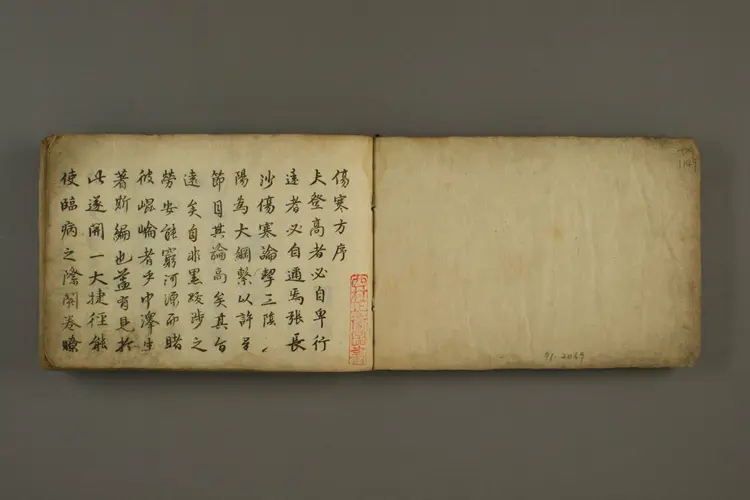 傷寒方序
夫登高者必自卑行
遠者必自通焉張長
沙傷寒論挈三陰
陽為大綱繫以許多
節目其論高矣其旨
遠矣自非累跋涉之
勞安能窮河源而睹
彼崐崘者乎中澤生
著斯編也蓋有見於
此遂開一大捷徑能
使臨病之際開卷瞭
91-2069